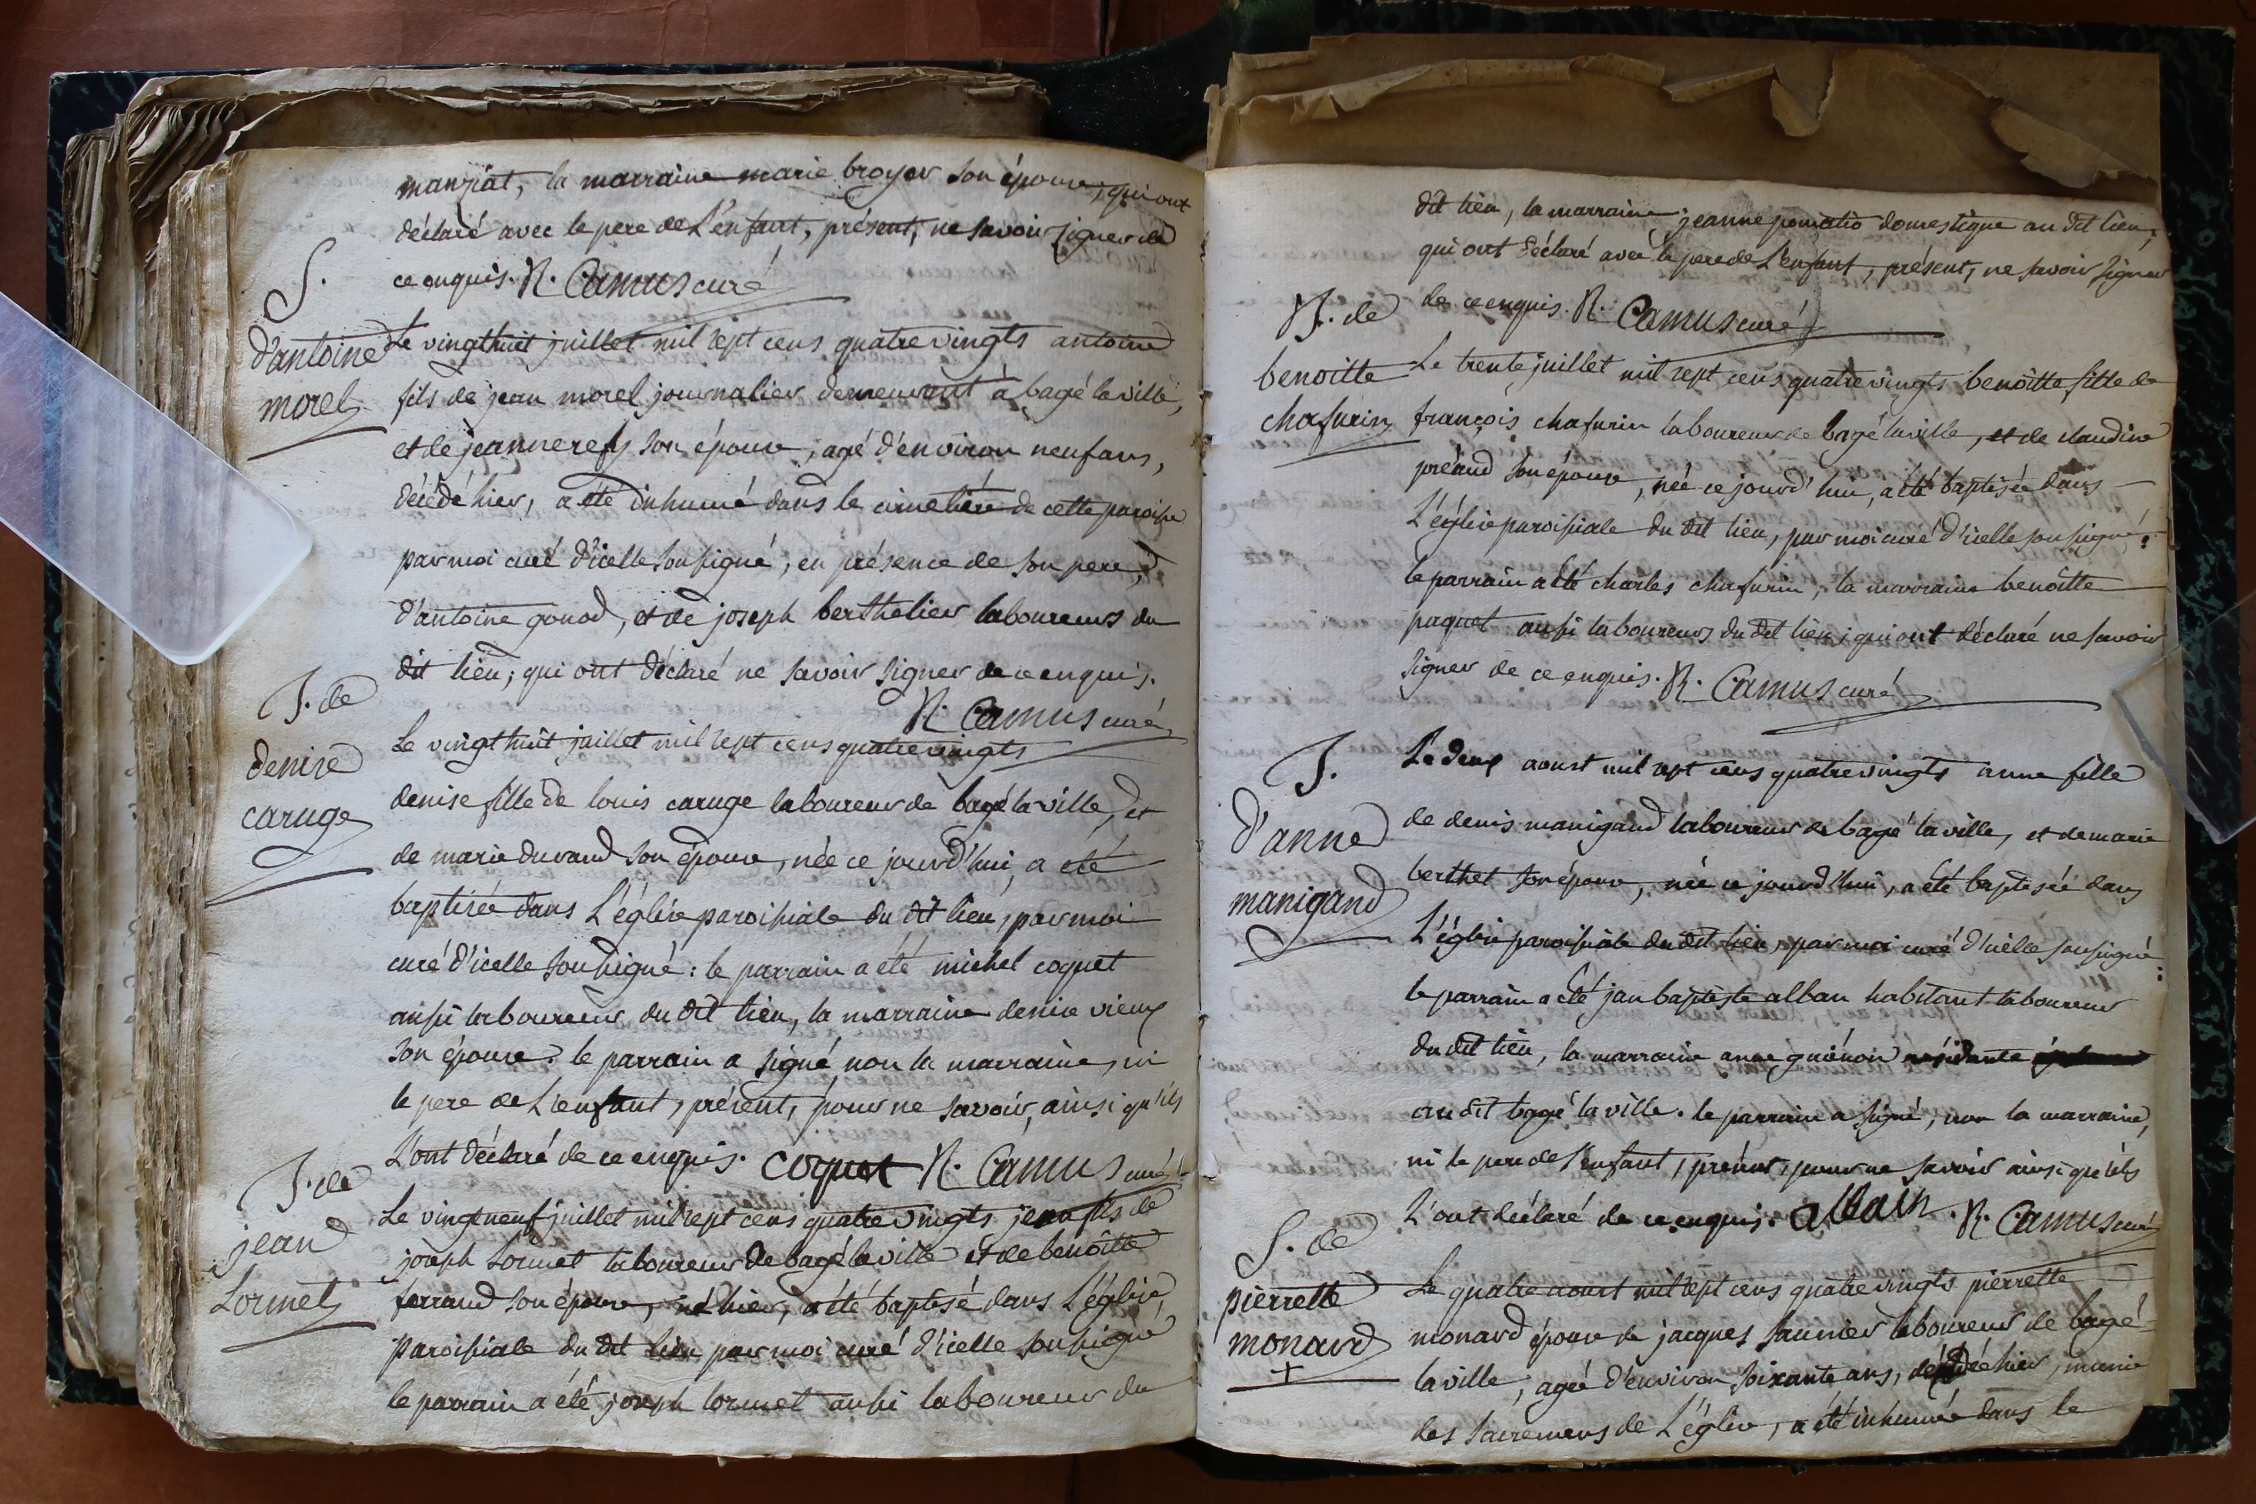 manziat, la marraine marie broyer son épouse, qui ont
déclaré avec le pere de L'enfant, présent, ne savoir signer de
ce enquis. R. Camus curé
S.
d'antoine
morel
Le vingthuit juillet mil sept cens quatrevingts antoine
fils de jean morel journalier demeurant à bagé la ville,
et de jeanne refy son épouse, agé d'environ neuf ans,
décédé hier, a été inhumé dans le cimetière de cette paroisse
par moi curé d'icelle soussigné, en présence de son pere,
d'antoine gonod, et de joseph berthelier laboureurs du
dit lieu; qui ont déclaré ne savoir signer de ce enquis.
R. Camus curé
J. de
denise
caruge
Le vingthuit juillet mil sept cens quatrevingts
denise fille de louis caruge laboureur de bagé la ville, et
de marie durand son épouse, née ce jourd'hui, a été
baptisée dans L'église paroissiale du dit lieu, par moi
curé d'icelle soussigné: le parrain a été michel coquet
aussi laboureur du dit lieu, la marraine denise vieux
son épouse. le parrain a signé, non la marraine, ni
le pere de L'enfant, présent, pour ne savoir, ainsi qu'ils
L'ont déclaré de ce enquis. coquet R. Camus curé
J. de
jean
Lormet
Le vingtneuf juillet mil sept cens quatrevingts jean fils de
joseph Lormet laboureur de bagé la ville et de benoîtte
ferrand son épouse, né hier, a été baptisé dans L'église,
paroissiale du dit lieu par moi curé d'icelle soussigné
le parrain a été joseph lormet aussi laboureur du
dit lieu, la marraine jeanne domestique au dit lieu,
qui ont déclaré avec le pere de L'enfant, présent, ne savoir signer
de ce enquis. R. Camus curé
J. de
benoitte
chafurin
Le trente juillet mil sept cens quatrevingts benoîtte fille de
françois chafurin laboureur de bagé la ville, et de claudine
préaud son épouse, née ce jourd'hui, a été baptisée dans
L'église paroissiale du dit lieu, par moi curé d'icelle soussigné:
le parrain a été charles chafurin, la marraine benoîtte
paquet aussi laboureurs du dit lieu, qui ont déclaré ne savoir
signer de ce enquis. R. Camus curé
J.
d'anne
manigand
Le deux aoust mil sept cens quatrevingts anne fille
de denis manigand laboureur de bagé la ville, et de marie
berthet son épouse, née ce jourd'hui, a été baptisée dans
L'église paroissiale du dit lieu, par moi curé d'icelle soussigné:
le parrain a été jan baptiste alban habitant laboureur
du dit lieu, la marraine anne guénoin résidante
au dit bagé la ville. le parrain a signé, non la marraine,
ni le pere de l'enfant, présent, pour ne savoir ainsi qu'ils
L'ont déclaré de ce enquis. alban. R. Camus curé
S. de
pierrette
monard
+
Le quatre aoust mil sept cens quatrevingts pierrette
monard épouse de jacques saunier laboureur de bagé
la ville, agée d'environ soixante ans, décédée hier, munie
des sacremens de L'église, a été inhumée dans le